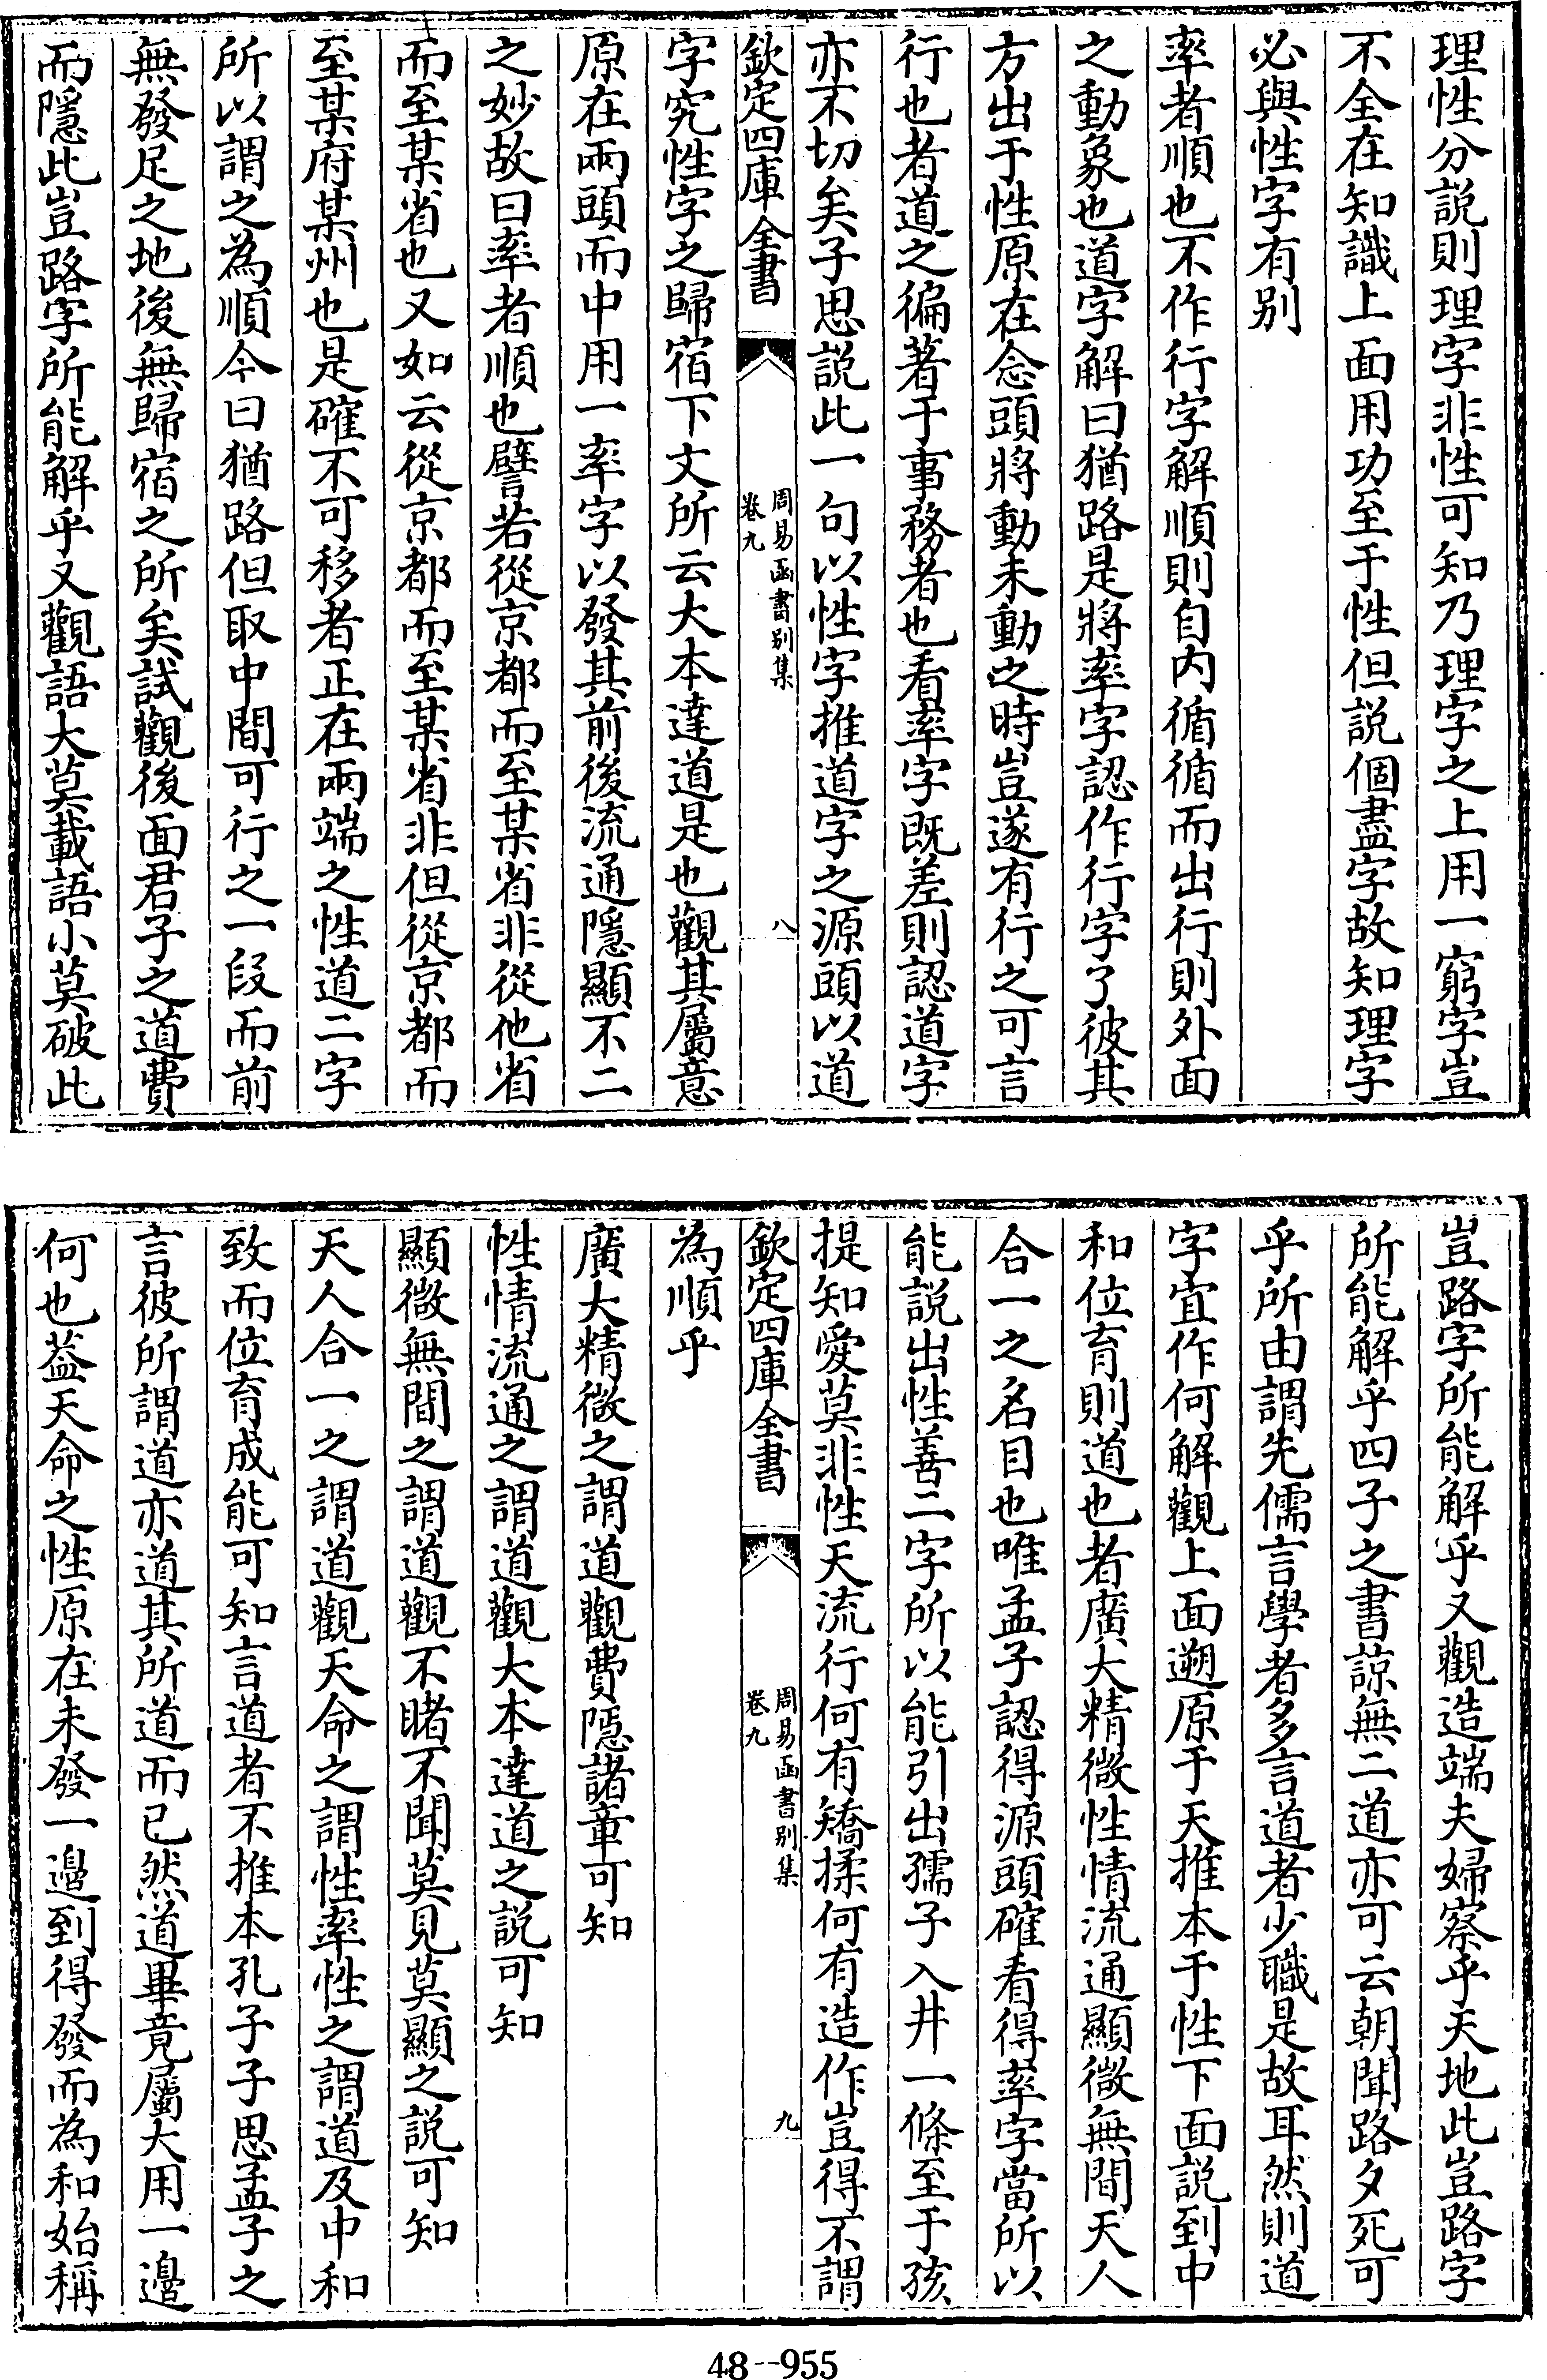 理性分説則理字非性可知乃理字之上用一窮字豈
不全在知識上面用功至于性但説個盡字故知理字
必與性字有别
率者順也不作行字解順則自内循循而出行則外面
之動象也道字解曰猶路是將率字認作行字了彼其
方出于性原在念頭將動未動之時豈遂有行之可言
行也者道之徧著于事務者也看率字既差則認道字
亦不切矣子思説此一句以性字推道字之源頭以道
欽定四庫全書
周易函書别集
卷九
八
字究性字之歸宿下文所云大本達道是也觀其屬意
原在兩頭而中用一率字以發其前後流通隱顯不二
之妙故曰率者順也譬若從京都而至某省非從他省
而至某省也又如云從京都而至某省非但從京都而
至某府某州也是確不可移者正在兩端之性道二字
所以謂之為順今曰猶路但取中間可行之一段而前
無發足之地後無歸宿之所矣試觀後面君子之道費
而隱此豈路字所能解乎又觀語大莫載語小莫破此
豈路字所能解乎又觀造端夫婦察乎天地此豈路字
所能解乎四子之書諒無二道亦可云朝聞路夕死可
乎所由謂先儒言學者多言道者少職是故耳然則道
字宜作何解觀上面遡原于天推本于性下面説到中
和位育則道也者廣大精微性情流通顯微無間天人
合一之名目也唯孟子認得源頭確看得率字當所以
能説出性善二字所以能引出孺子入井一條至于孩
提知愛莫非性天流行何有矯揉何有造作豈得不謂
欽定四庫全書
周易函書别集
卷九
九
為順乎
廣大精微之謂道觀費隱諸章可知
性情流通之謂道觀大本達道之説可知
顯微無間之謂道觀不睹不聞莫見莫顯之説可知
天人合一之謂道觀天命之謂性率性之謂道及中和
致而位育成能可知言道者不推本孔子子思孟子之
言彼所謂道亦道其所道而已然道畢竟屬大用一邉
何也葢天命之性原在未發一邉到得發而為和始稱
48-955